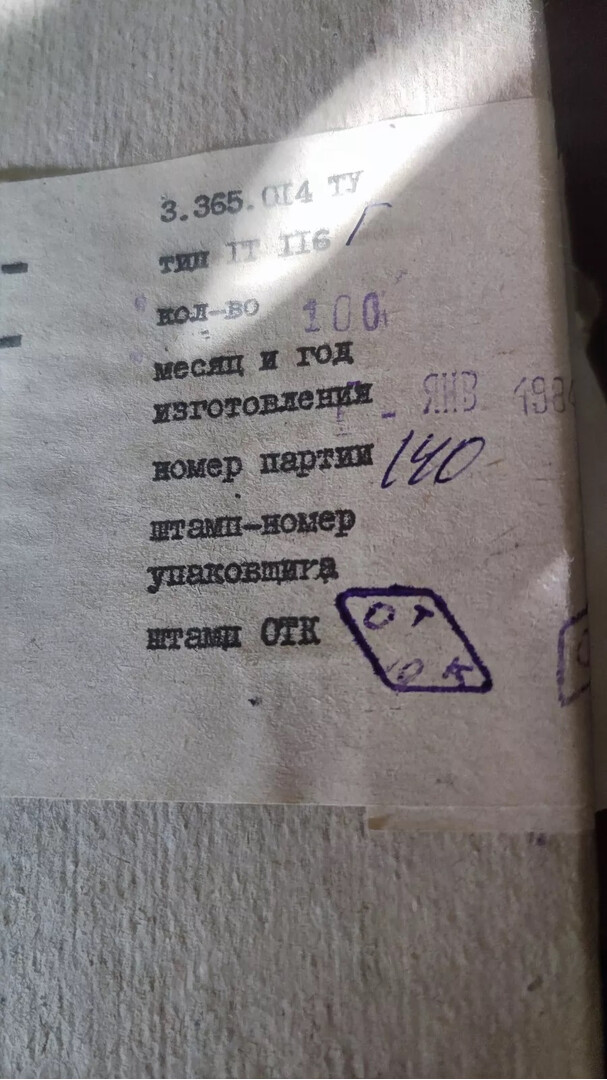 3.365.014 ТУ
тип IT II6 Г
кол-во 100
месяц и год
изготовления - ЯНВ 198
номер партии 140
штамп-номер
упаковщика
штамп ОТК ОТ
К